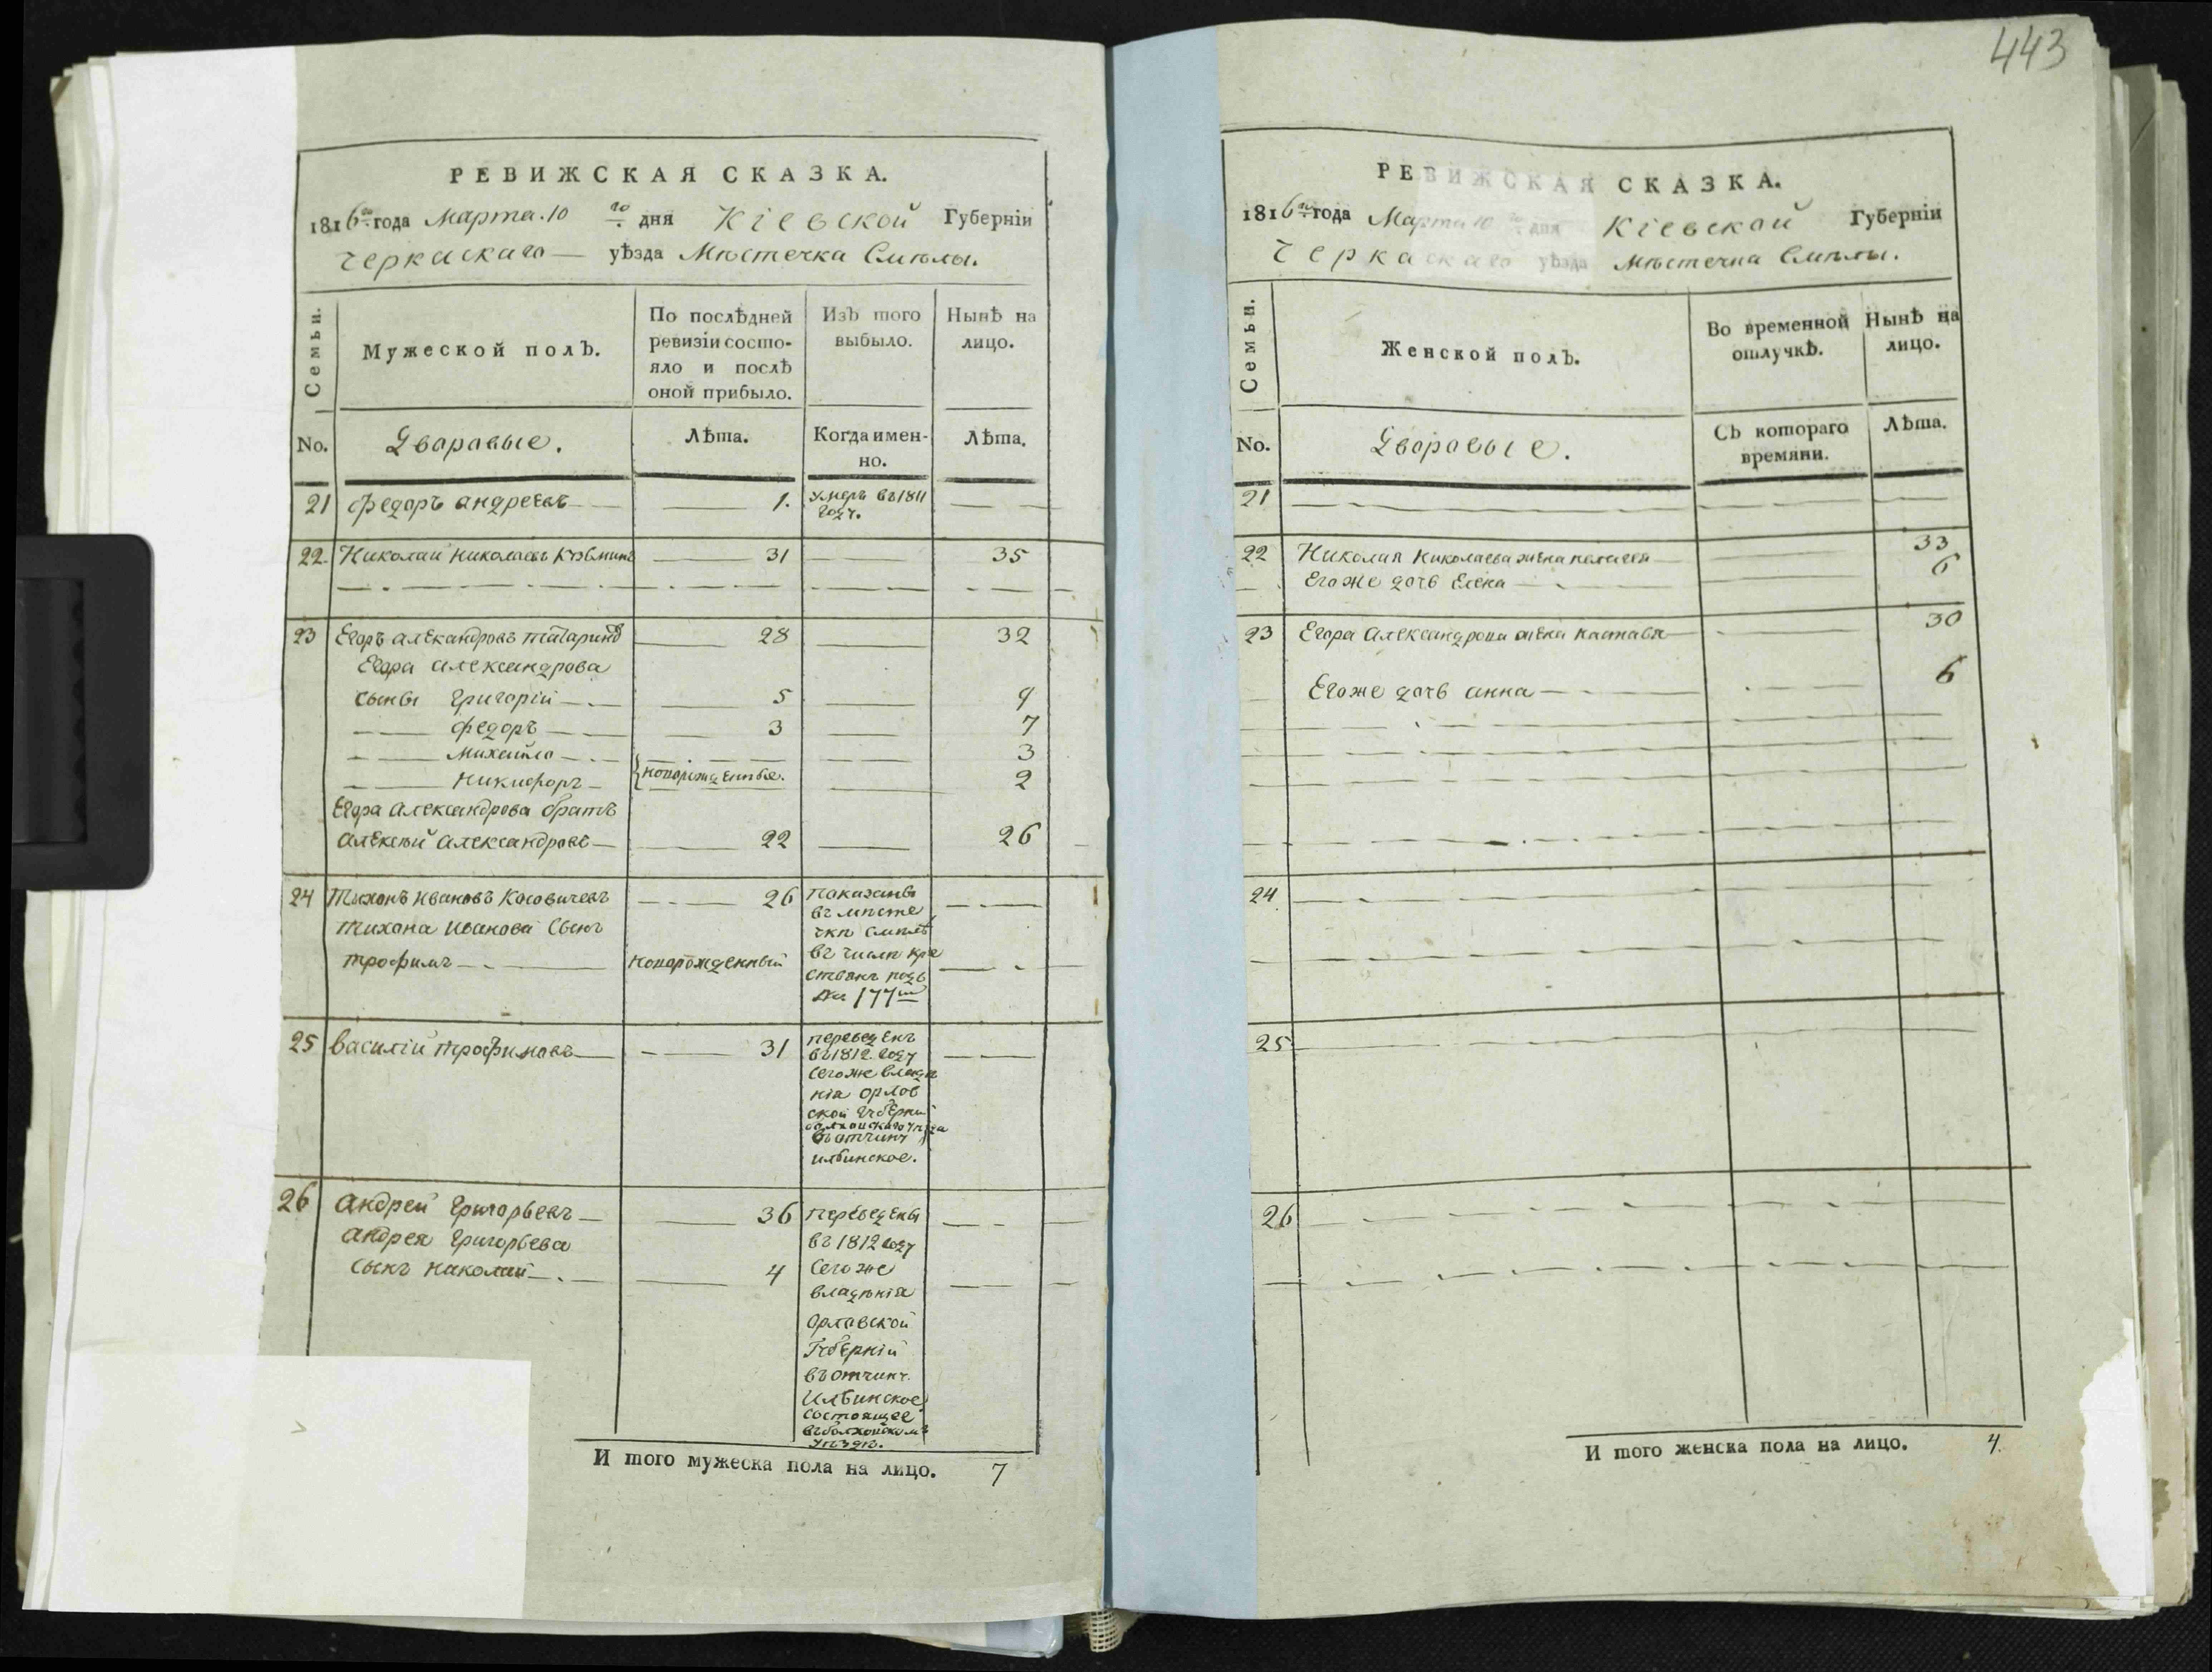 443
РЕВИЖСКАЯ СКАЗКА.
1816го года Марта 10 го дня Кіевской Губерніи
Черкаскаго уѣзда Мѣстечка Смѣлы.
Семьи.
Мужеской полъ.
По послѣдней ревизіи состояло и послѣ оной прибыло.
Изъ того выбыло.
Нынѣ на лицо.
No.
Дворовые.
Лѣта.
Когда именно.
Лѣта.
21 Федоръ Андреевъ 1. умеръ въ 1811 году.
22. Николай Николаевъ Кузминъ 31 35
23 Егоръ Александровъ Татаринъ 28 32
Егора Александрова
сыны Григорій 5 9
Федоръ 3 7
Михайло 3
Никифоръ новорожденные. 2
Егора Александрова братъ
Алексѣй Александровъ 22 26
24 Тихонъ Ивановъ Косовичевъ 26 показаны
въ мѣсте
чкѣ Смѣлѣ
Тихона Иванова сынъ
Трофимъ новорожденный въ числѣ кре
стьянъ подъ
No 177м
25 Василій Трофимовъ 31 переведенъ
въ 1812 году
сегоже владѣ
нія Орлов
ской Губерніи
болховскаго уѣзда
въ отчину
Ильинское.
26 Андрей Григорьевъ 36 переведены
Андрея Григорьева въ 1812 году
сынъ Николай 4 сегоже
владѣнія
Орловской
Губерніи
въ отчину
Ильинское
состоящее
въ болховскомъ
уѣздѣ.
И того мужеска пола на лицо. 7
РЕВИЖСКАЯ СКАЗКА.
1816го года Марта 10 го дня Кіевской Губерніи
Черкаскаго уѣзда Мѣстечка Смѣлы.
Семьи.
Женской полъ.
Во временной отлучкѣ.
Нынѣ на лицо.
No.
Дворовые.
Съ котораго времяни.
Лѣта.
21
22 Николая Николаева жена Пелагея 33
Егоже дочь Елена 6
23 Егора Александрова жена Настасья 30
Егоже дочь Анна 6
24
25
26
И того женска пола на лицо. 4.